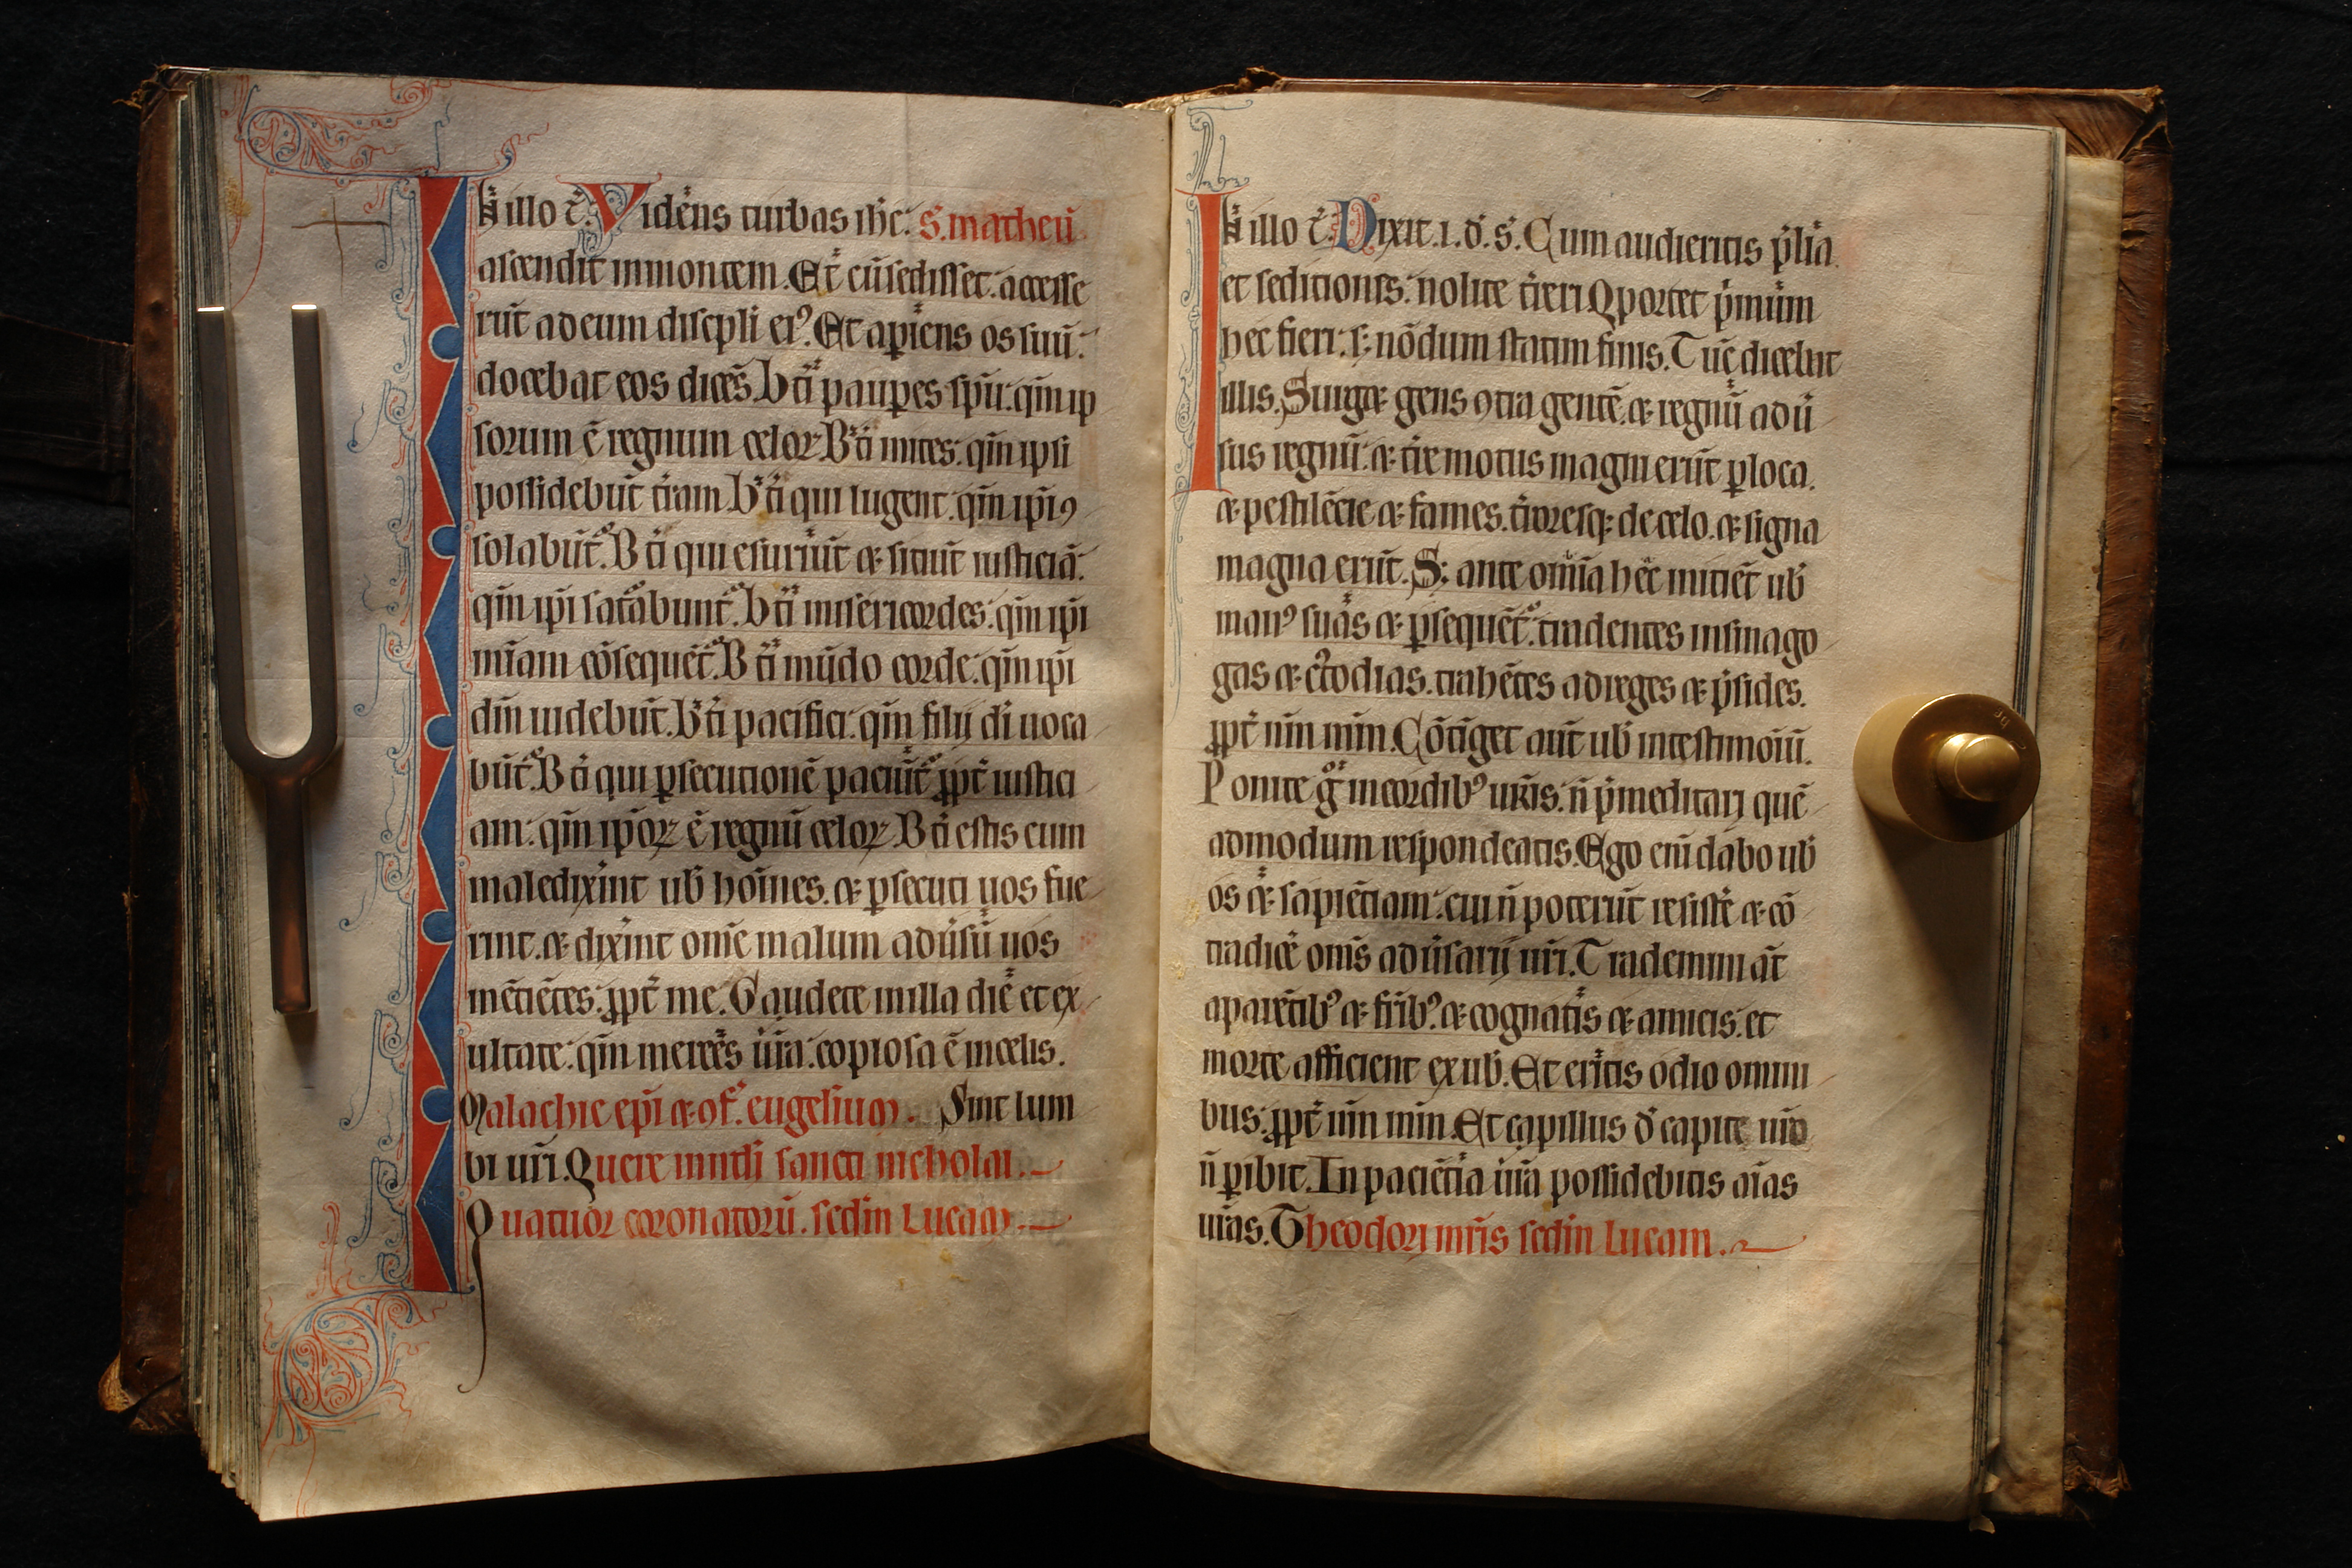 In illo t̄. Videns turbas ih̄c: s. matheū.
ascendit in montem. Et cū sedisset: accesse
rūt ad eum discipli ei⁹. Et apiens os suū:
docebat eos dicēs. Bt̄i paupes spū: qm̄ ip
sorum ē regnum celoꝝ. Bt̄i mites: qm̄ ipsi
possidebūt t̄ram. Bt̄i qui lugent: qm̄ ip̄i ꝯ
solabūt᷑. Bt̄i qui esuriūt ⁊ sitiūt iusticiā:
qm̄ ip̄i sat̄abunt᷑. Bt̄i misericordes: qm̄ ip̄i
mīam cōsequēt᷑. Bt̄i mūdo corde: qm̄ ip̄i
dm̄ uidebūt. Bt̄i pacifici: qm̄ filij di uoca
būt᷑. Bt̄i qui ꝑsecutionē paciūt᷑ ꝓpt̄ iustici
am: qm̄ ip̄oꝝ ē regnū celoꝝ. Bt̄i estis cum
maledixīnt ub̄ hoīnes. ⁊ ꝑsecuti uos fue
rint. ⁊ dixīnt om̄e malum adūsū uos
mētiētes: ꝓpt̄ me. Gaudete in illa die et ex
ultate: qm̄ mercēs ūra: copiosa ē in celis.
Malachie ep̄i ⁊ ꝯf. eugelium. Sint lum
bi ur̄i. Quere in nt̄li sancti nicholai.
Quatuor coronatorū. scd̄m Lucam.
In illo t̄. Dixit .i. d̄. s̄. Cum audieritis p̄lia
et seditiones: nolite t̄reri Oportet p̄mūm
hec fieri: s; nōdum statim finis. Tūc dicebat
illis. Surget gens ꝯtra gentē. ⁊ regnū adū
sus regnū: ⁊ t̄re motus magni erūt ꝑ loca.
⁊ pestilēcie ⁊ fames. t̄roresq; de celo. ⁊ signa
magna erūt. S; ante om̄ia hec iniciēt ub̄
man⁹ suas ⁊ ꝑsequēt᷑: tradentes in sinago
gas ⁊ c⁹todias. trahētes ad reges ⁊ p̄sides.
ꝓpt̄ nm̄ mm̄. Cōtīget aūt ub̄ in testimoiū.
Ponite g° in cordib⁹ ur̄is: n̄ p̄meditari quē
admodum respondeatis. Ego eni dabo ub̄
os ⁊ sapiētiam: cui n̄ poterūt resist̄e ⁊ cō
tradic̄e om̄s adūsarij ur̄i. Trademini āt
a parētib⁹ ⁊ fr̄ib⁹. ⁊ cognatis ⁊ amicis: et
morte afficient ex ub̄. Et eritis odio omni
bus: ꝓpt̄ nm̄ mm̄. Et capillus d̄ capite uro
n̄ ꝑibit. In paciētia ūra possidebitis aīas
ur̄as. Theodori mr̄is scd̄m Lucam.